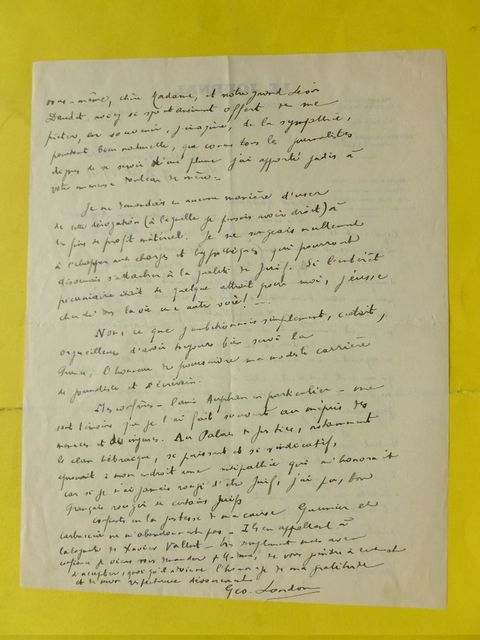 vous-même, chère Madame, et notre grand Léon
Daudet aviez si spontanément offert de me
prêter, en souvenir, j'imagine, de la sympathie,
pourtant bien naturelle, que comme tous les journalistes
dignes de se servir d'une plume j'ai apporté jadis à
votre
Je ne demandais en aucune manière d'user
de cette dérogation (à laquelle je pensais avoir droit) à
des fins de profit matériel. Je ne songeais nullement
à échapper aux charges et hypothèques qui pourront
désormais s'attacher à la qualité de Juif. Si l'intérêt
pécuniaire était de quelque attrait pour moi, j'eusse
cherché dans la vie une autre voie!
Non, ce que j'ambitionnais simplement, c'était,
orgueilleux d'avoir toujours bien servi la
France, l'honneur de poursuivre ma modeste carrière
de journaliste et d'écrivain.
Mes confrères - l'ami Auphan en particulier - me
sont témoins que je l'ai fait souvent au mépris des
menaces et des injures. Au Palais de Justice, notamment
le clan hébraïque, si puissant et si vindicatif,
avait à mon endroit une antipathie qui m'honorait
car si je n'ai jamais rougi d'être Juif, j'ai pu, bon
Français rougir de certains Juifs
Confiants en la justesse de ma cause, Guernier et
Carbuccia ne m'abandonnent pas. Ils en appellent à
de Xavier Vallat.
je viens vous demander
d'accepter, quoi qu'il advienne l'hommage de ma gratitude
et de mon respectueux dévouement
Geo. London